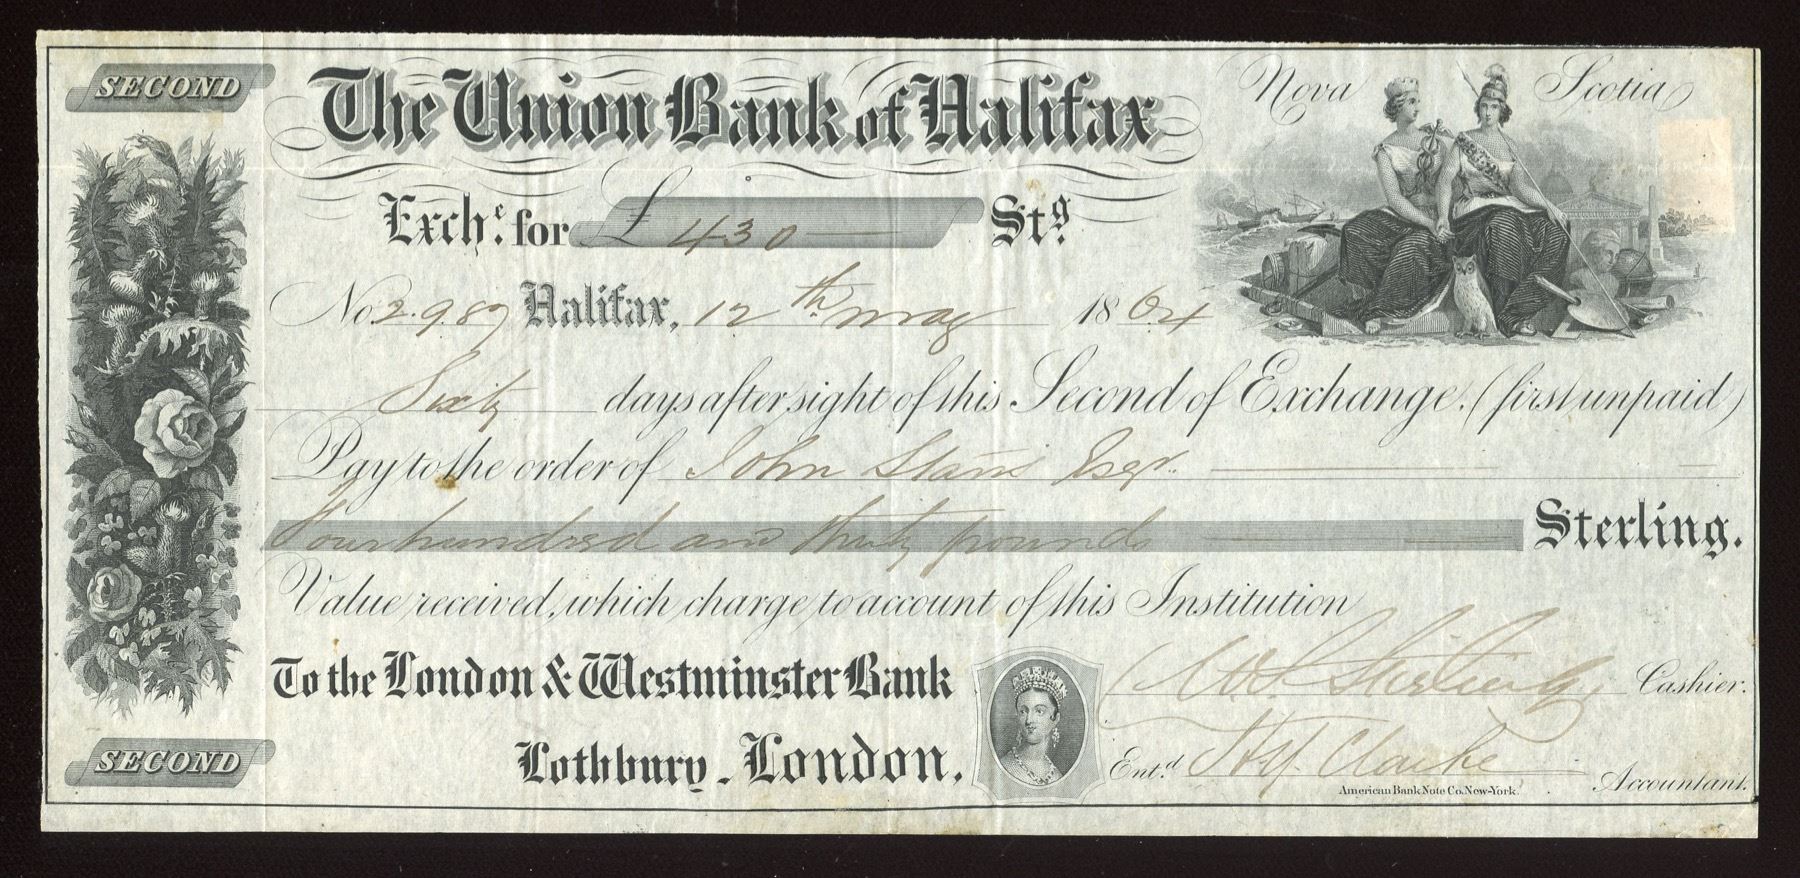 SECOND
The Union Bank of Halifax
Nova Scotia
Exch.ᵉ for £ 430 — Stg.
No 2.987 Halifax, 12th May 1864
Sixty days after sight of this Second of Exchange, (first unpaid)
Pay to the order of John Stairs Esqr.
Four hundred and thirty pounds Sterling.
Value received, which charge to account of this Institution
To the London & Westminster Bank
Stirling Cashier.
SECOND
Lothbury - London.
Ent.d Clarke Accountant.
American Bank Note Co. New-York.